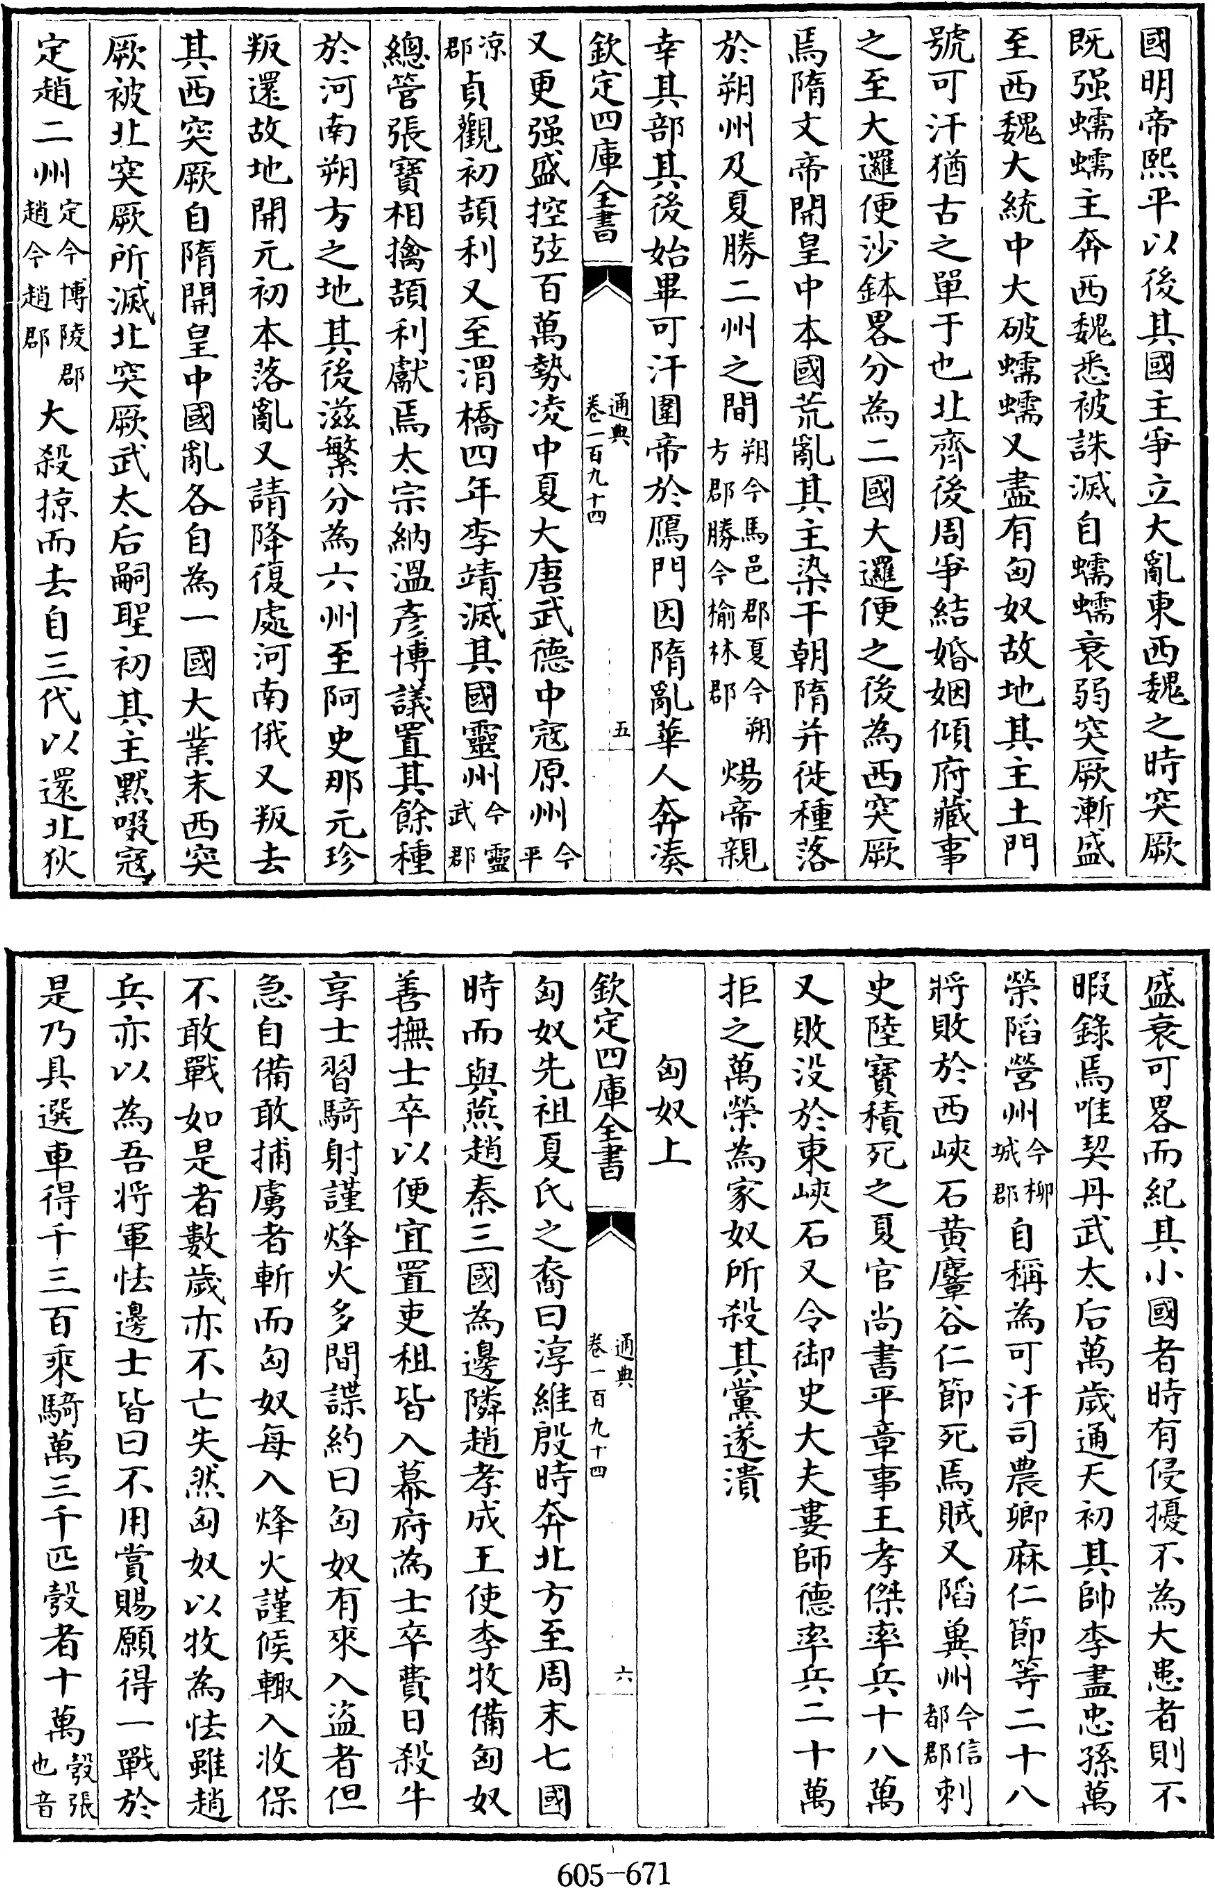 國明帝熙平以後其國主爭立大亂東西魏之時突厥
既强蠕蠕主奔西魏悉被誅滅自蠕蠕衰弱突厥漸盛
至西魏大統中大破蠕蠕又盡有匈奴故地其主土門
號可汗猶古之單于也北齊後周爭結婚姻傾府藏事
之至大邏便沙鉢畧分為二國大邏便之後為西突厥
焉隋文帝開皇中本國荒亂其主染干朝隋并徙種落
於朔州及夏勝二州之間朔今馬邑郡夏今朔方郡勝今榆林郡煬帝親
幸其部其後始畢可汗圍帝於鴈門因隋亂華人奔湊
欽定四庫全書 通典 卷一百九十四 五
又更强盛控弦百萬勢凌中夏大唐武德中寇原州今平
涼郡貞觀初頡利又至渭橋四年李靖滅其國靈州今靈武郡
總管張寶相擒頡利獻焉太宗納溫彥博議置其餘種
於河南朔方之地其後滋繁分為六州至阿史那元珍
叛還故地開元初本落亂又請降復處河南俄又叛去
其西突厥自隋開皇中國亂各自為一國大業末西突
厥被北突厥所滅北突厥武太后嗣聖初其主默啜寇
定趙二州定今博陵郡趙今趙郡大殺掠而去自三代以還北狄
盛衰可畧而紀其小國者時有侵擾不為大患者則不
暇錄焉唯契丹武太后萬歲通天初其帥李盡忠孫萬
榮陷營州今柳城郡自稱為可汗司農卿麻仁節等二十八
將敗於西峽石黃麞谷仁節死焉賊又陷兾州今信都郡刺
史陸寶積死之夏官尚書平章事王孝傑率兵十八萬
又敗没於東峽石又令御史大夫婁師德率兵二十萬
拒之萬榮為家奴所殺其黨遂潰
匈奴上
欽定四庫全書 通典 卷一百九十四 六
匈奴先祖夏氏之裔曰淳維殷時奔北方至周末七國
時而與燕趙秦三國為邊隣趙孝成王使李牧備匈奴
善撫士卒以便宜置吏租皆入幕府為士卒費日殺牛
享士習騎射謹烽火多間諜約曰匈奴有來入盜者但
急自備敢捕虜者斬而匈奴每入烽火謹候輙入收保
不敢戰如是者數歲亦不亡失然匈奴以牧為怯雖趙
兵亦以為吾將軍怯邊士皆曰不用賞賜願得一戰於
是乃具選車得千三百乘騎萬三千匹彀者十萬彀張也音
605-671